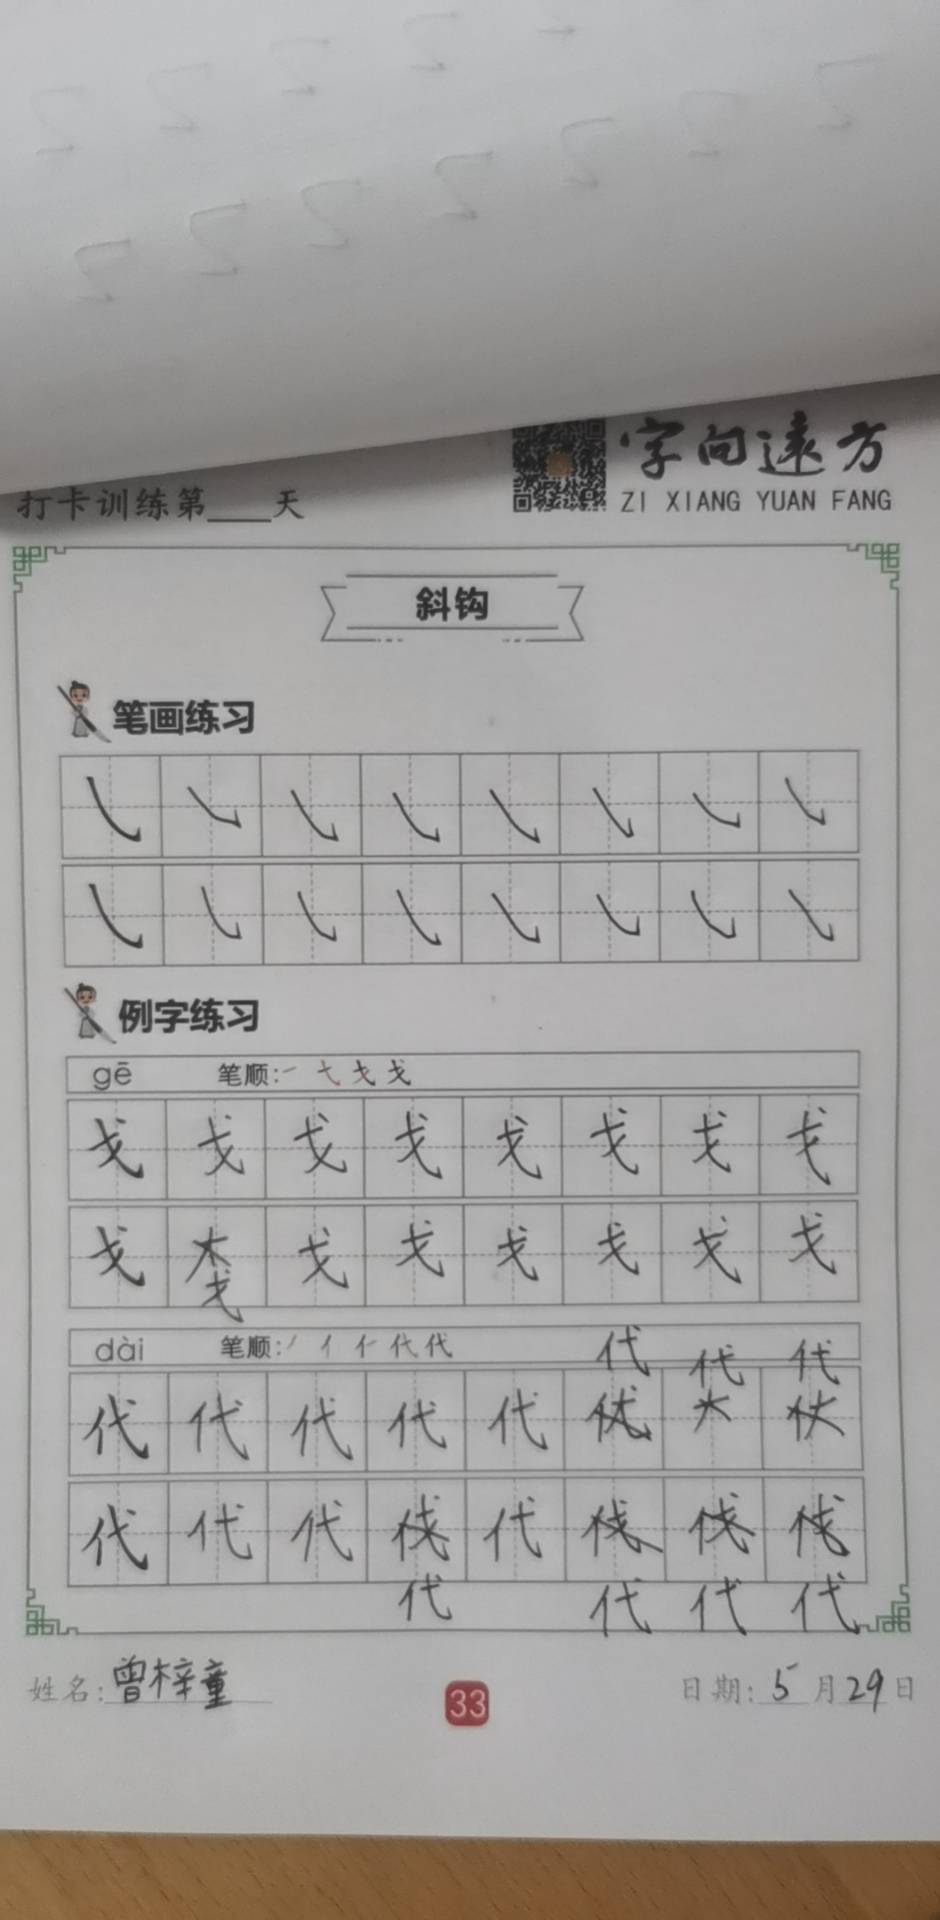 打卡训练第____天
字向远方
ZI XIANG YUAN FANG
斜钩
笔画练习
㇂ ㇂ ㇂ ㇂ ㇂ ㇂ ㇂ ㇂
㇂ ㇂ ㇂ ㇂ ㇂ ㇂ ㇂ ㇂
例字练习
gē 笔顺:
戈 戈 戈 戈 戈 戈 戈 戈
戈 戈 戈 戈 戈 戈 戈 戈
dài 笔顺:
代 代 代
代 代 代 代 代
代 代 代 代
代 代 代 代
姓名:曾梓童
33
日期:5月29日